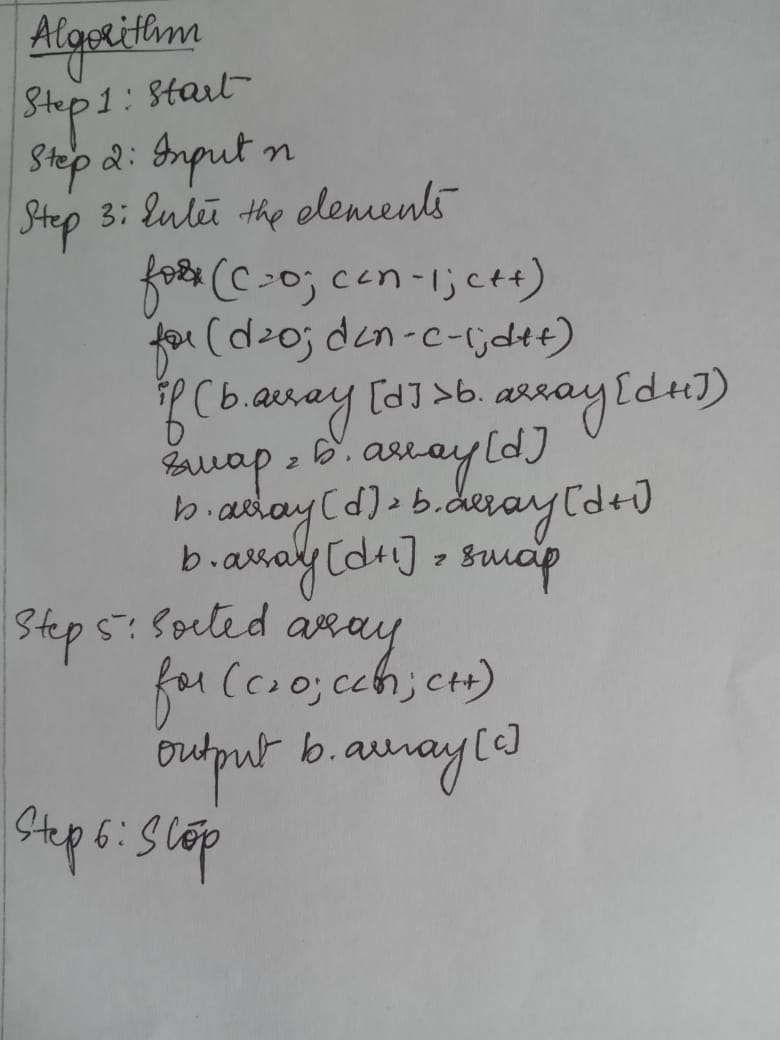 Algorithm
Step 1: Start
Step 2: Input n
Step 3: Enter the elements
for (c=0; c<n-1; c++)
for (d=0; d<n-c-1; d++)
if (b.array[d] > b.array[d+1])
swap = b.array[d]
b.array[d] = b.array[d+1]
b.array[d+1] = swap
Step 5: Sorted array
for (c=0; c<n; c++)
output b.array[c]
Step 6: Stop